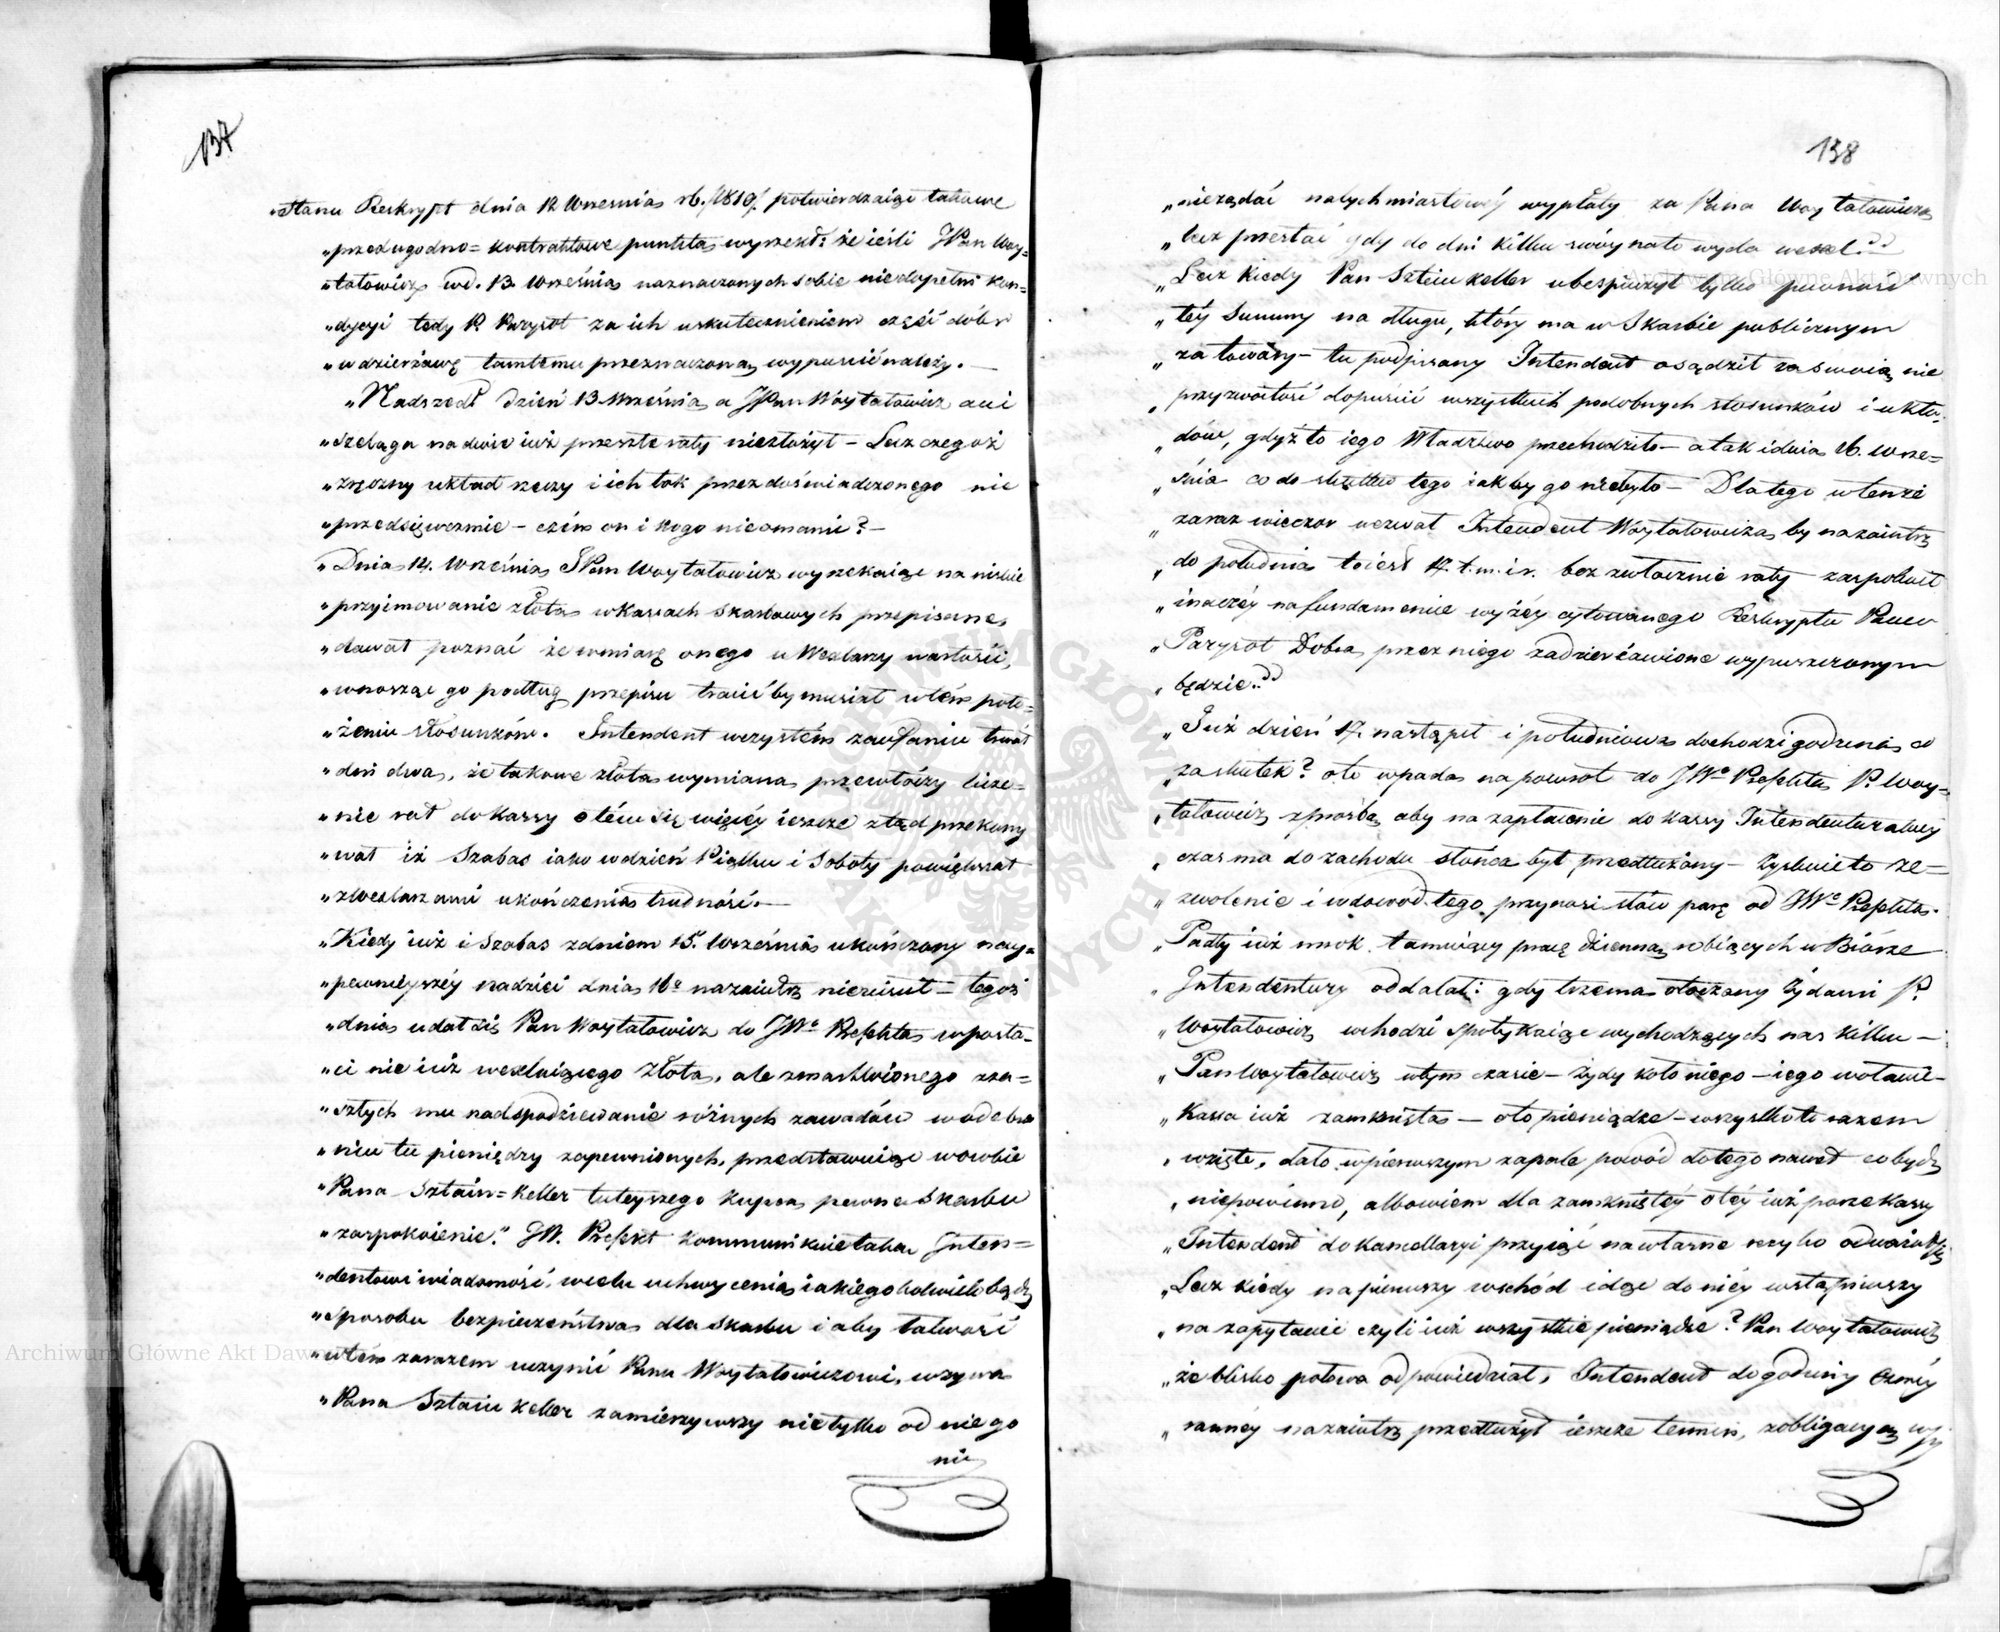 137
„Stanu Reskrypt dnia 12 Września r.b. /1810/ potwierdzaiąc takowe
„przedugodno=kontraktowe punkta, wyrzekł: że ieśli JPan Woy=
„tatowicz wd. 13. Września naznaczonych sobie niedopełni kon=
„dycyi tedy P. Parysot za ich uskutecznieniem część dóbr
„w dzierżawę tamtemu przeznaczoną, wypuścić należy. —
„Nadszedł dzień 13 Września, a JPan Woytatowicz ani
„szeląga na dwie iuż przeszłe raty niezłożył — Lecz czegoż
„zręczny układ rzeczy i ich tok przez doświadczonego nie
„przedsięweźmie — czém on i kogo nieomami? —
„Dnia 14. Września JPan Woytatowicz wyrzekaiąc na niskie
„przyimowanie złota w kassach skarbowych przepisane,
„dawał poznać że wmiarę onego u Wexlarzy wartości,
„wnosząc go podług przepisu tracićby musiał w tém poło=
„żeniu stosunków. Intendent wczystém zaufaniu trwał
„dni dwa, że takowe złota wymiana, przewłóczy licze=
„nie rat do kassy o tém się więcéy ieszcze ztąd przekony
„wał iż Szabas iako w dzień Piątku i Soboty powiększał
„z Wexlarzami ukończenia trudność. —
„Kiedy iuż i Szabas z dniem 15. Września ukończony nay=
„pewnieyszéy nadziei dnia 16o nazaiutrz nieziścił — tegoż
„dnia udał się Pan Woytatowicz do JWo Prefekta w posta=
„ci nie iuż wexluiącego złota, ale zmartwionego zza=
„szłych mu nadspodziewanie różnych zawadów w odebra
„niu tu pieniędzy zapewnionych, przedstawuiąc w osobie
„Pana Sztain=keller tuteyszego kupca, pewne Skarbu
„zaspokoienie." JW. Prefekt kommunikuie taką Inten=
„dentowi wiadomość, wcelu uchwycenia iakiegokolwiekbądź
„sposobu bezpieczeństwa dla Skarbu i aby łatwość
„w tém zarazem uczynić Panu Woytatowiczowi, wzywa
„Pana Sztain keller zamierzywszy nietylko od niego
nie
138
„nieżądać natychmiastowéy wypłaty za Pana Woytatowicza
„lecz przestać gdy do dni kilku swóy nato wyda wexel."
„Lecz kiedy Pan Sztein keller ubespieczył tylko pewność
„téy Summy na długu, który ma w Skarbie publicznym
„za towary — tu podpisany Intendent osądził za swoią nie
„przyzwoitość dopuścić wszystkich podobnych stosunków i ukła=
„dów, gdyż to iego Władztwo przechodziło — a tak i dnia 16. Wrze=
„śnia co do skutku tego iakby go niebyło — Dlatego w tenże
„zaraz wieczór wezwał Intendent Woytatowicza, by nazaiutrz
„do południa to iest 17. t.m. i r. bezzwłocznie raty zaspokoił
„inaczéy na fundamencie wyżéy cytowanego Reskryptu Panu
„Parysot Dobra przez niego zadzierżawione wypuszczonym
„będzie."
„Już dzień 17. nastąpił i południowa dochodzi godzina, a
„za skutek? oto wpada na powrót do JWo Prefekta P. Woy=
„tatowicz z prośbą, aby na zapłacenie do kassy Intendenturalnéy
„czas ma do zachodu słońca był przedłużony — Zyskuie to ze=
„zwolenie i w dowód tego przynosi słów parę od JWo Prefekta.
„Padły iuż mrok tamuiący pracę dzienną, robiących w Biórze
„Intendentury oddalał: gdy trzema otoczony Żydami P.
„Woytatowicz wchodzi spotykaiąc wychodzących nas kilku —
„Pan Woytatowicz wtym czasie — Żydy koło niego — iego wołanie —
„Kassa iuż zamknięta — oto pieniądze — wszystko to razem
„wzięte, dało w pierwszym zapale powód do tego nawet co bydź
„niepowinno, albowiem dla zamkniętéy o téy iuż porze kassy
„Intendent do kancellaryi przyiąć na własne ryzyko odważał się
„Lecz kiedy na pierwszy wschód idąc do niéy wstąpiwszy
„na zapytanie czyli iuż wszystkie pieniądze? Pan Woytatowicz
„że blisko połowa odpowiedział, Intendent do godziny ósméy
„rannéy nazaiutrz przedłużył ieszcze termin, zobligacyą wy